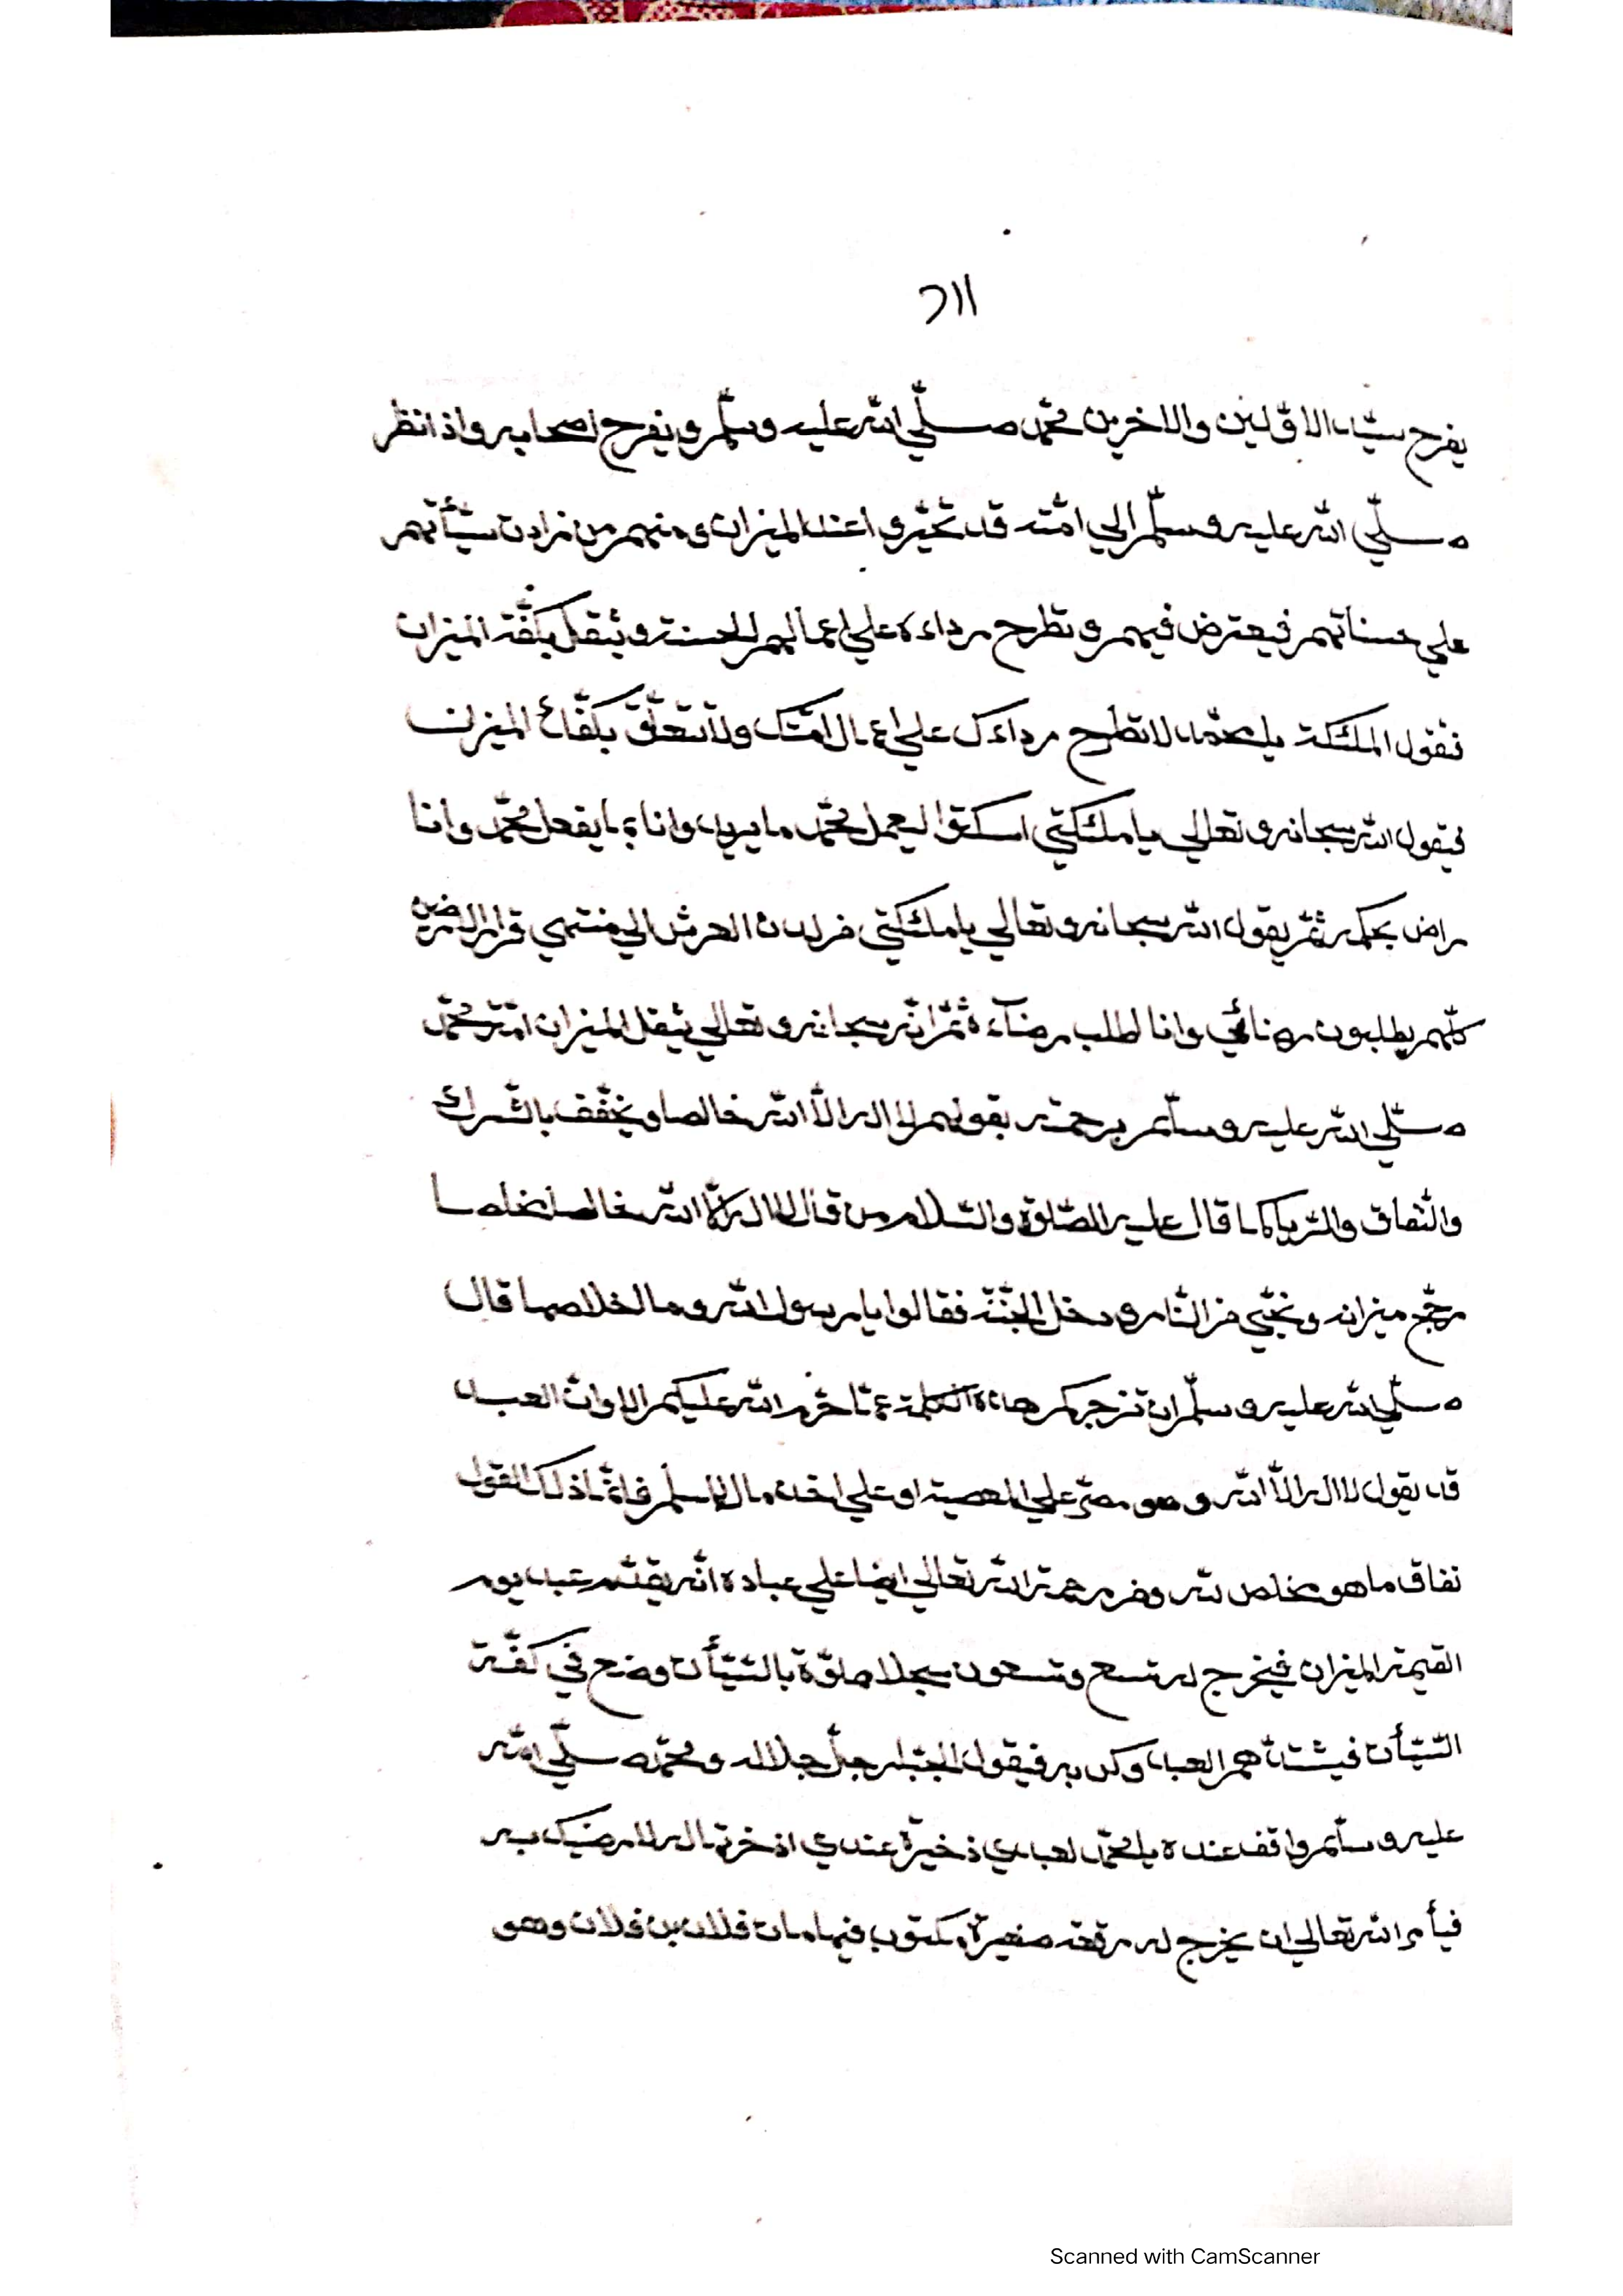 ١١٢
يفرح سيّد الاوّلين والاخرين محمّد صلّي الله عليه وسلّم ويفرح اصحابه واذا نظر
صلّي الله عليه وسلّم الي امّته قد تحيّروا عند الميزان ومنهم من زادت سيّأتهم
علي حسناتهم فيعترض فيهم وتطرح رداءه علي اعمالهم الحسنة ويثقل بكفّة الميزان
فتقول الملئكة يا محمّد لا تطرح رداءك علي اعمال امّتك ولا تتعلّق بكفّاة الميزان
فيقول الله سبحانه وتعالي يا ملئكتي اسكتوا ليعمل محمّد ما يريد وانا بما يفعل محمّد وانا
راض بحكمه ثمّ يقول الله سبحانه وتعالي يا ملئكتي من لدن العرش الي منتهي قرار الارضين
كلّهم يطلبون رضائي وانا اطلب رضآءه ثمّ الله سبحانه وتعالي يثقل الميزان امّة محمّد
صلّي الله عليه وسلّم برحمته بقولهم لا اله الّا الله خالصا ويخفّف بالشّرك
والنّفاق والرّيا كما قال عليه الصّلوة والسّلام من قال لا اله الّا الله خالصا مخلصا
رجّح ميزانه ونجّي من النّار ودخل الجنّة فقالوا يا رسول الله وما اخلاصها قال
صلّي الله عليه وسلّم ان تزجركم هذه الكلمة عمّا حرّم الله عليكم الا وانّ العبد
قد يقول لا اله الّا الله وهو مصرّ علي المعصية او علي اخذ مال المسلم فانّ ذلك القول
نفاق ما هو مخلص لله ومن رحمة الله تعالي ايضا علي عباده انّه يقدّم عبد يوم
القيمة الميزان فيخرج له تسع وتسعون سجلا مملوّة بالسّيّأت وضع في كفّة
السّيّأت فيشتدّ همّ العبد وكربه فيقول الجبّار جلّ جلاله ومحمّد صلّي الله
عليه وسلّم واقف عنده يا محمّد لعبدي ذخيرة عندي اذخرتها له لارضيك به
فيأمر الله تعالي ان يخرج له رقعة صغيرة مكتوب فيها مات فلان بن فلان وهو
Scanned with CamScanner